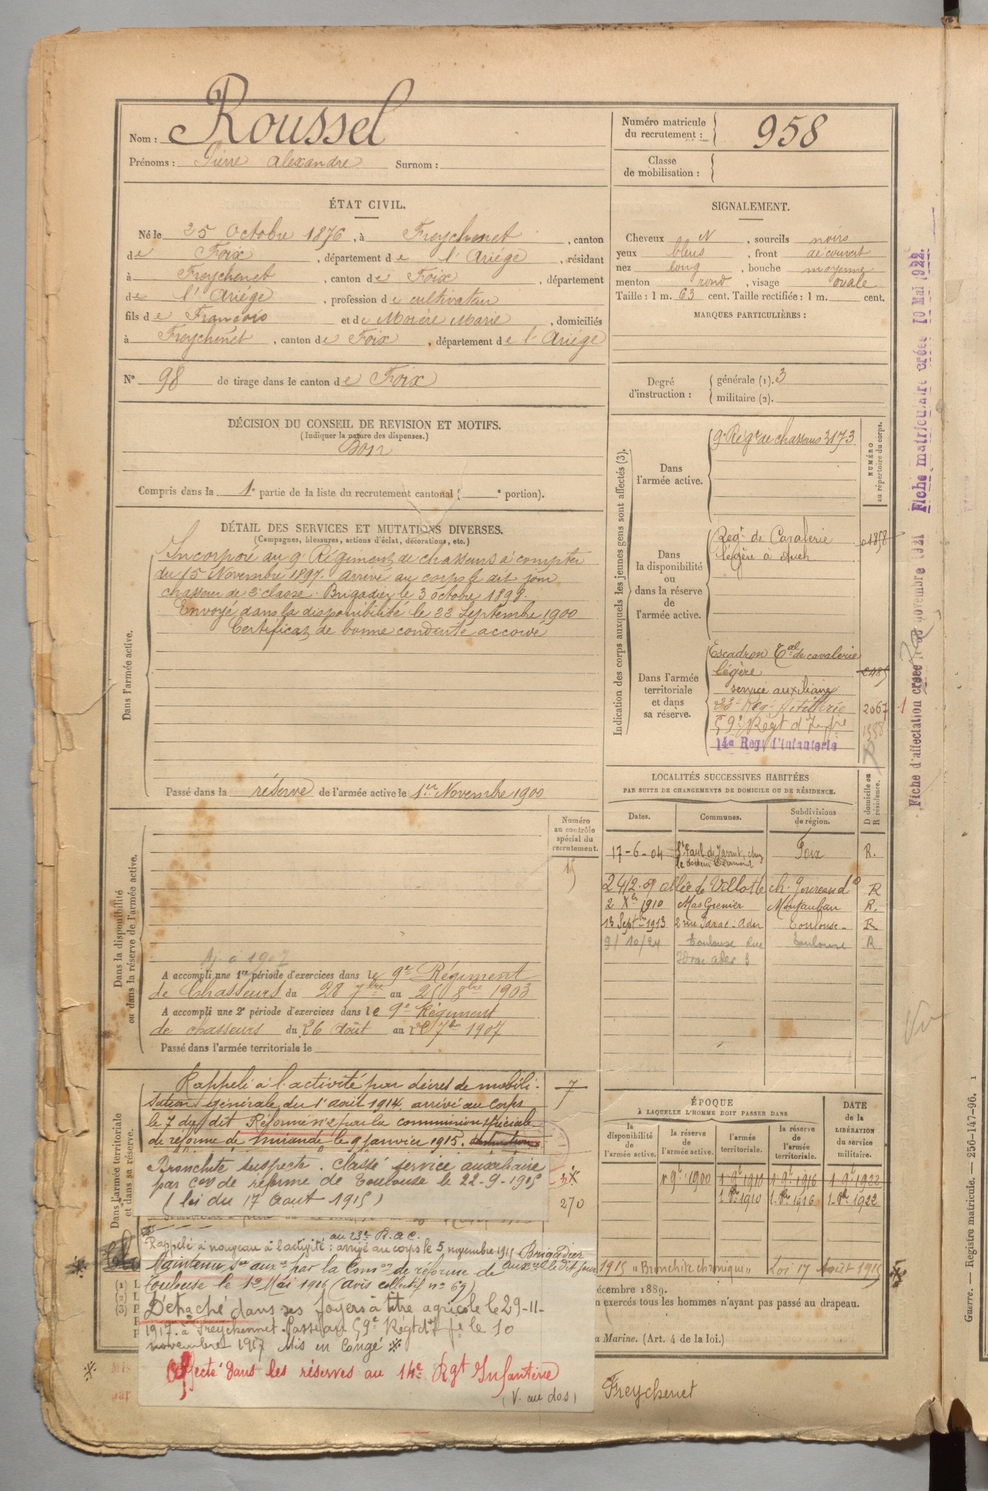 Nom : Roussel
Prénoms : Pierre Alexandre Surnom :
Numéro matricule du recrutement : 958
Classe de mobilisation :
ÉTAT CIVIL.
Né le 25 Octobre 1876, à Freychenet, canton
de Foix, département de l'Ariège, résidant
à Freychenet, canton de Foix, département
de l'Ariège, profession de cultivateur
fils de François et de Morère Marie, domiciliés
à Freychenet, canton de Foix, département de l'Ariège
N° 98 de tirage dans le canton de Foix
SIGNALEMENT.
Cheveux N, sourcils noirs
yeux bleus, front découvert
nez long, bouche moyenne
menton rond, visage ovale
Taille : 1 m. 63 cent. Taille rectifiée : 1 m. cent.
MARQUES PARTICULIÈRES :
Degré d'instruction : générale (1). 3
militaire (2).
DÉCISION DU CONSEIL DE REVISION ET MOTIFS.
(Indiquer la nature des dispenses.)
Bon
Compris dans la 1e partie de la liste du recrutement cantonal ( e portion).
DÉTAIL DES SERVICES ET MUTATIONS DIVERSES.
(Campagnes, blessures, actions d'éclat, décorations, etc.)
Dans l'armée active.
Incorporé au 9e Régiment de chasseurs à compter
du 15 Novembre 1897. Arrivé au corps le dit jour
chasseur de 2e classe. Brigadier le 3 octobre 1899.
Envoyé dans la disponibilité le 22 Septembre 1900
Certificat de bonne conduite accordé
Passé dans la réserve de l'armée active le 1er Novembre 1900
Indication des corps auxquels les jeunes gens sont affectés (3).
NUMÉRO au répertoire du corps.
Dans l'armée active.
9e Régt de chasseurs 3173
Dans la disponibilité ou dans la réserve de l'armée active.
Régt de Cavalerie
légère à Auch
Dans l'armée territoriale et dans sa réserve.
Escadron Tal de cavalerie
légère
service auxiliaire
23e Rég. Artillerie 2067
59e Régt d'Infrie
14e Reg. d'Infanterie
LOCALITÉS SUCCESSIVES HABITÉES
PAR SUITE DE CHANGEMENTS DE DOMICILE OU DE RÉSIDENCE.
Dates. Communes. Subdivisions de région. D domicile ou R résidence.
17-6-04 St Paul de Jarrat, chez Foix R.
R
2 Xbre 1910 Mas Grenier Montauban R.
13 Septbre 1913 Toulouse R
Toulouse rue Toulouse R
Dans la disponibilité ou dans la réserve de l'armée active.
Numéro au contrôle spécial du recrutement.
A accompli une 1re période d'exercices dans le 9e Régiment
de Chasseurs du 28 7bre au 25 8bre 1903
A accompli une 2e période d'exercices dans le 9e Régiment
de chasseurs du 26 août au 7bre 1907
Passé dans l'armée territoriale le
Dans l'armée territoriale et dans sa réserve.
Rappelé à l'activité par décret de mobili-
sation générale du 1er août 1914. arrivé au corps
le 7 du dit Réformé n° 2 par la commission spéciale
de réforme de Mirande le 9 janvier 1915.
Bronchite suspecte. Classé service auxiliaire
par con de réforme de Toulouse le 22-9-1915
(loi du 17 Aout 1915)
270
au 23e R.A.C.
Rappelé à nouveau à l'activité : arrivé au corps le 5 novembre 1915 Brigadier
Maintenu Sce auxre par la Comon de réforme de
Toulouse le 1er Mai 1916 (avis collectif n° 69)
1915 "Bronchite chronique" Loi 17 Août 1915
Détaché dans ses foyers à titre agricole le 29-11-
1917. à Freychennet. Passé au 59e Régt d'Ie le 10
novembre 1917 Mis en Congé
Affecté dans les réserves au 14e Rgt Infanterie
(V. au dos)
ÉPOQUE
À LAQUELLE L'HOMME DOIT PASSER DANS
la disponibilité de l'armée active. la réserve de l'armée active. l'armée territoriale. la réserve de l'armée territoriale.
DATE de la LIBÉRATION du service militaire.
1er 9bre 1900 1er 9bre 1910 1er 9bre 1916 1er 9bre 1922
1er 8bre 1910 1er 8bre 1916 1er 8bre 1922
décembre 1889.
n exercés tous les hommes n'ayant pas passé au drapeau.
a Marine. (Art. 4 de la loi.)
Freychenet
Fiche matriculaire créée 10 Mai 1922.
Fiche d'affectation créée novembre 1921
Guerre. — Registre matricule. — 256-147-96.